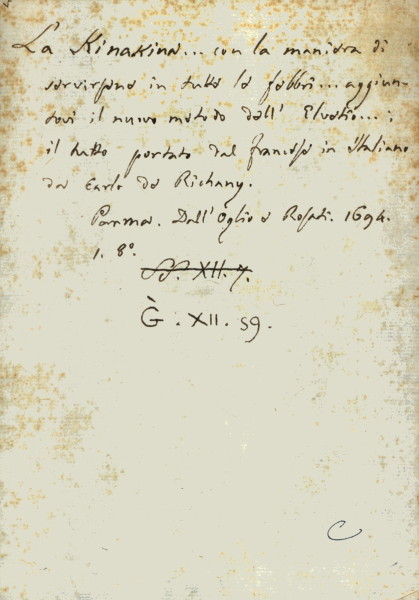 La Kinakina... con la maniera di
servirsene in tutte le febbri... aggiun-
tovi il nuovo metodo dell' Elvetio...;
il tutto portato dal francese in Italiano
da Carlo de Richany.
Parma. Dall'Oglio e Rosati. 1694.
1. 8°.
XII. 7.
G̀. XII. 59.
C